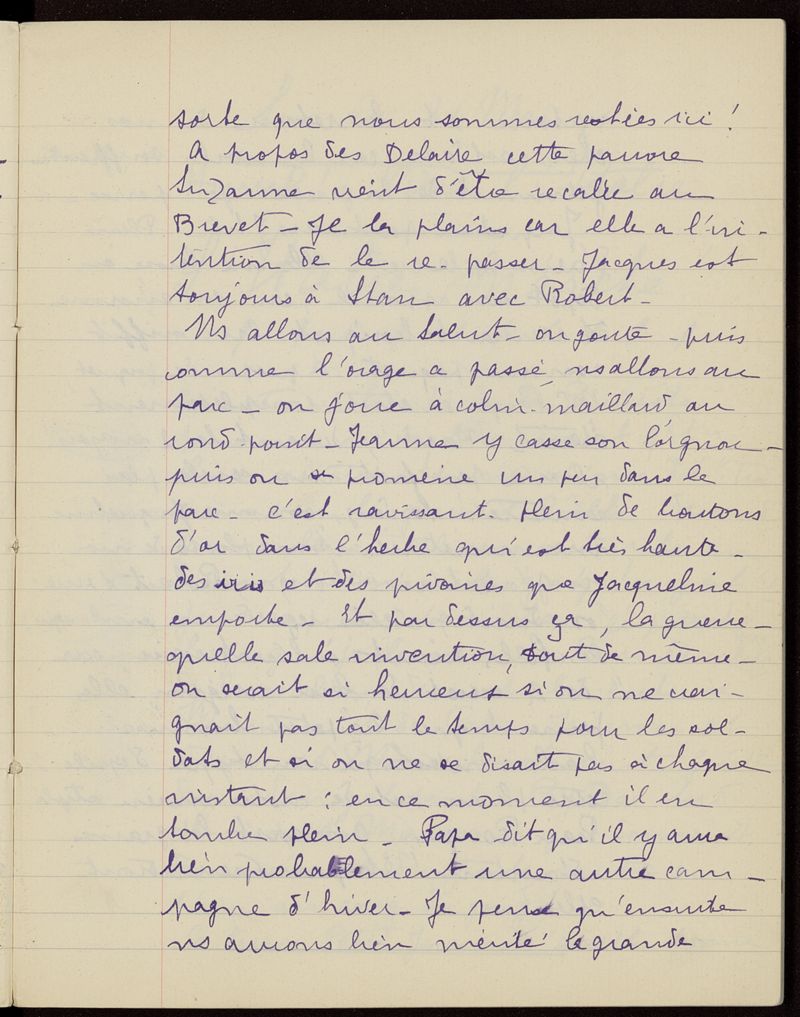 sorte que nous sommes restées ici !
A propos des Delaire cette pauvre
Suzanne vient d'être recalée au
Brevet – Je la plains car elle a l'in-
tention de le re-passer – Jacques est
toujours à Stan avec Robert –
Ns allons au Salut – on goute – puis
comme l'orage a passé, ns allons au
parc – on joue à colin-maillard au
rond point – Jeanne y casse son lorgnon –
puis on se promène un peu dans le
parc – c'est ravissant. plein de boutons
d'or dans l'herbe qui est très haute –
des iris et des pivoines que Jacqueline
emporte – Et par dessus ça, la guerre –
quelle sale invention, tout de même –
on serait si heureux si on ne crai-
gnait pas tout le temps pour les sol-
dats et si on ne se disait pas à chaque
instant : en ce moment il en
tombe plein – Papa dit qu'il y aura
bien probablement une autre cam-
pagne d'hiver – Je pense qu'ensuite
ns aurons bien mérité la grande